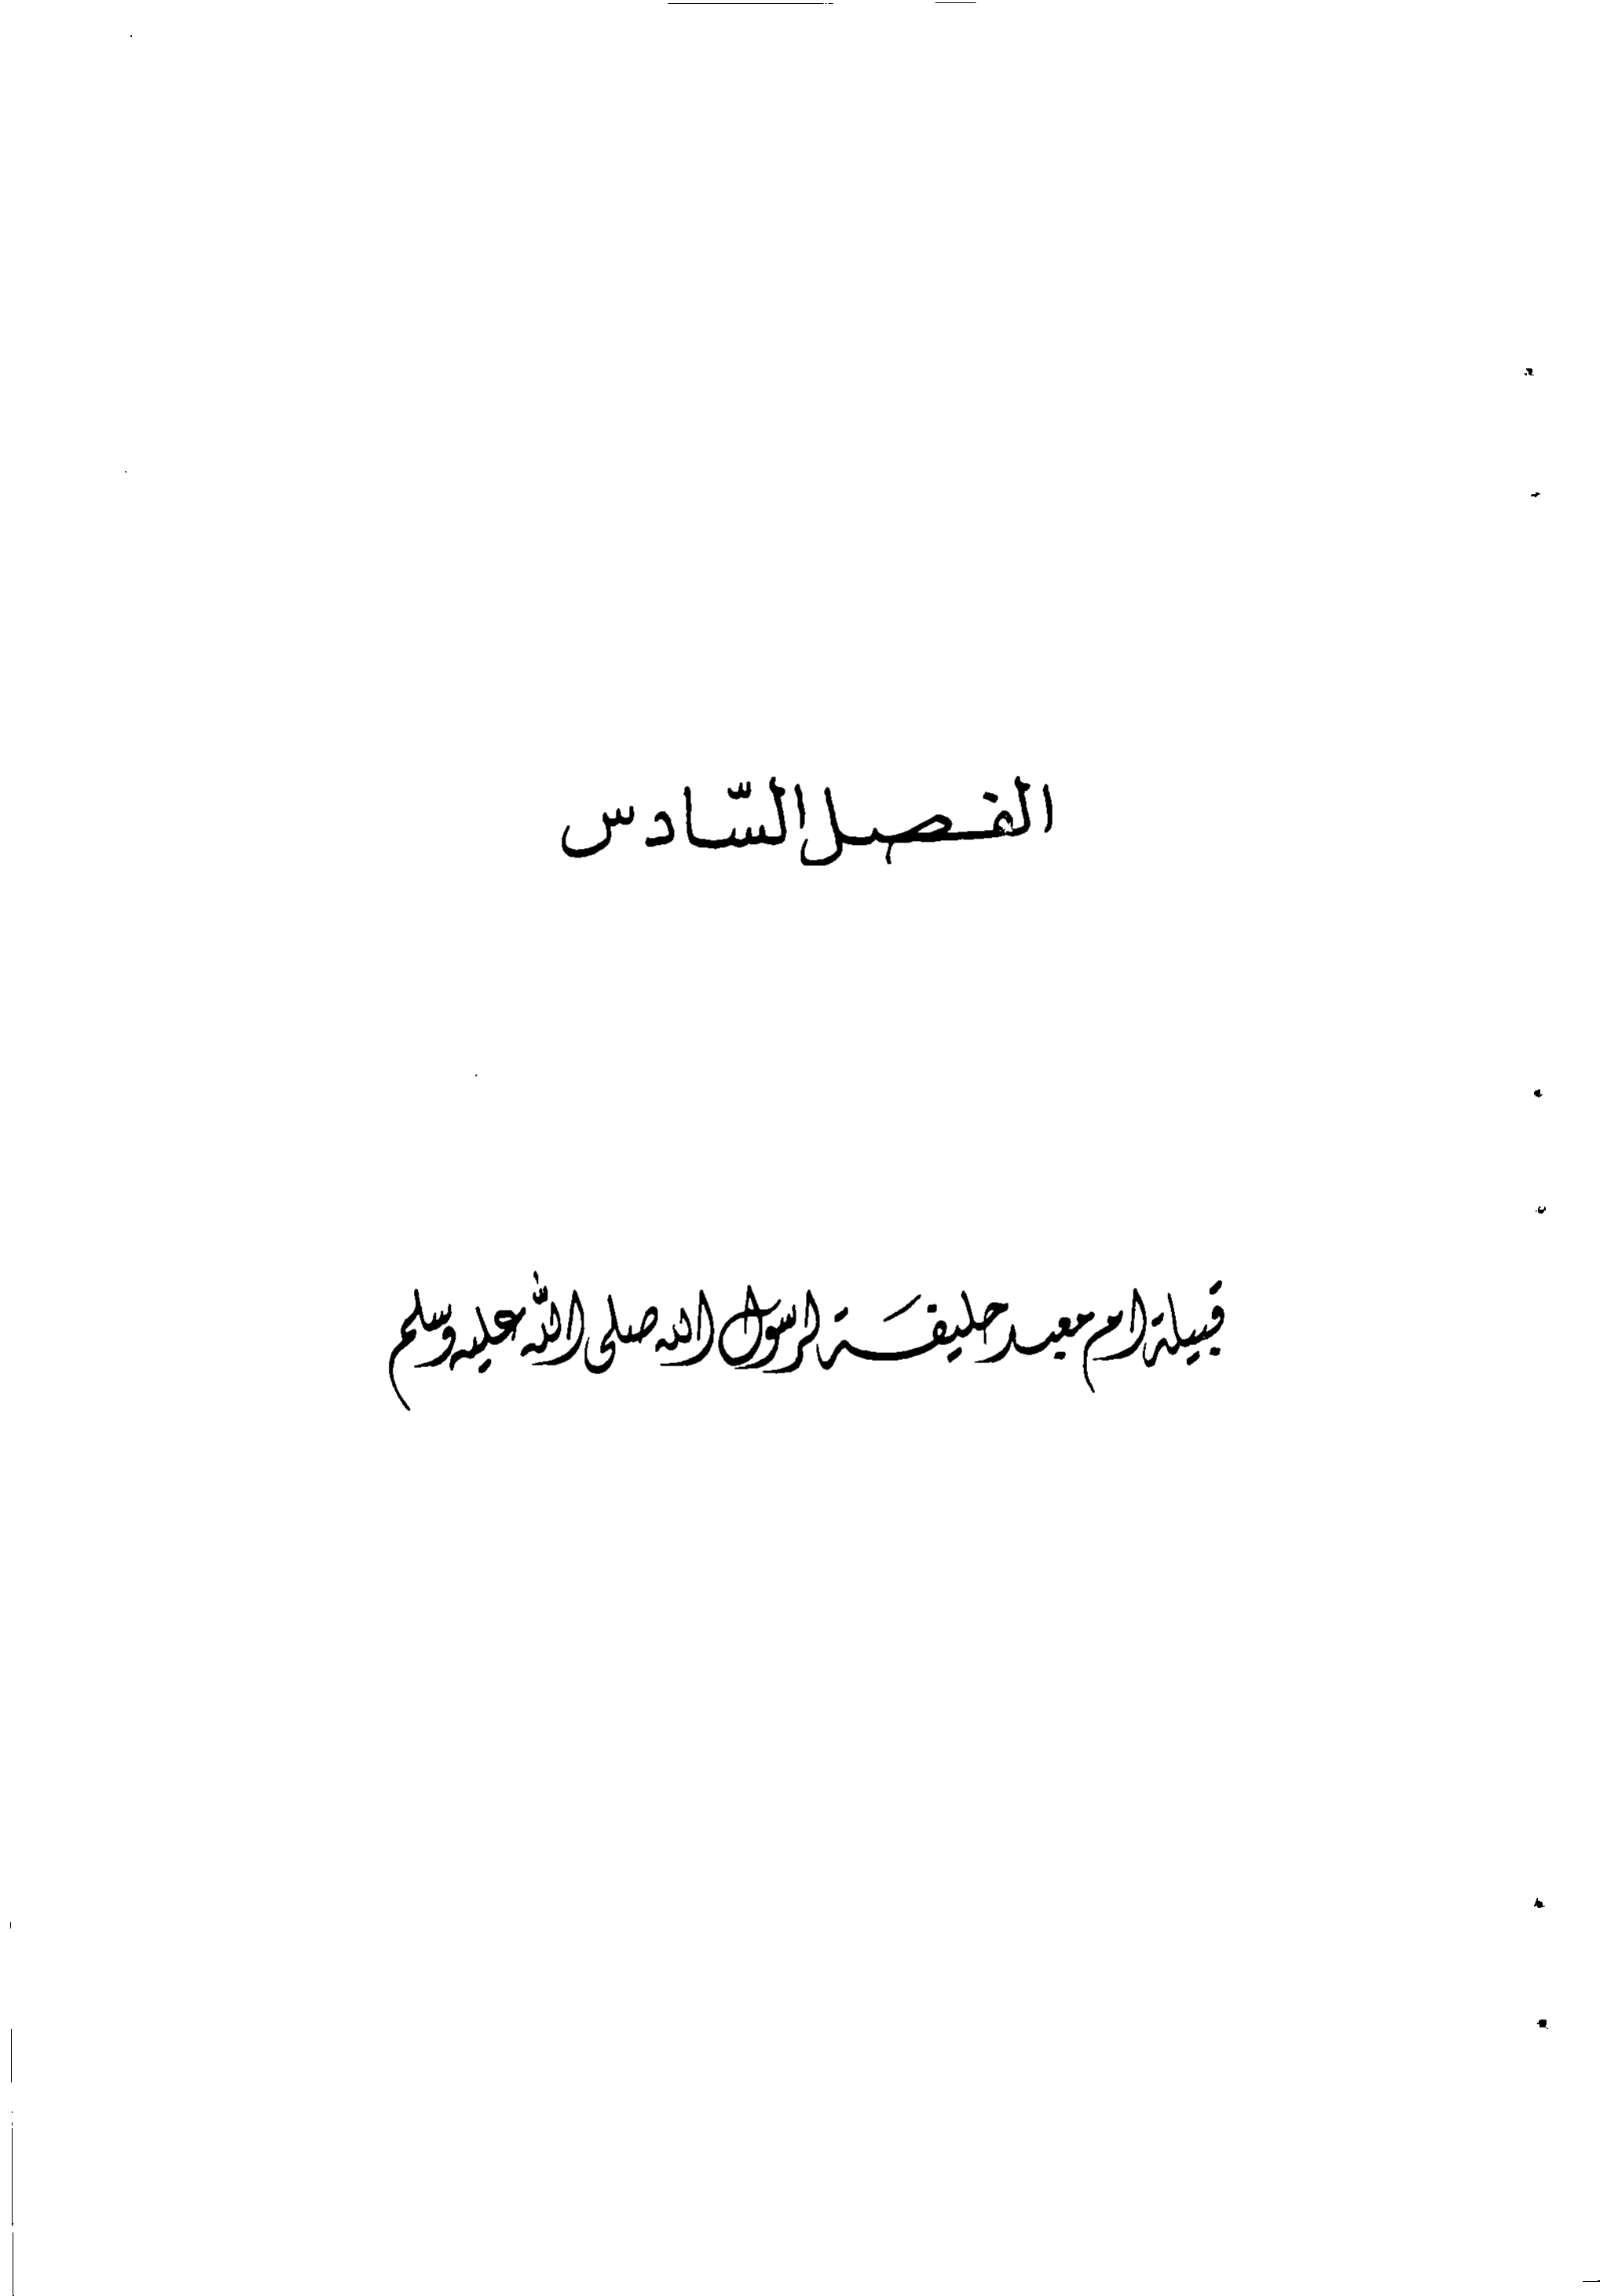 الفصل السّادس
قبيلة ام معبد حليفة رسول الله صلى اللّٰه عليه وسلم